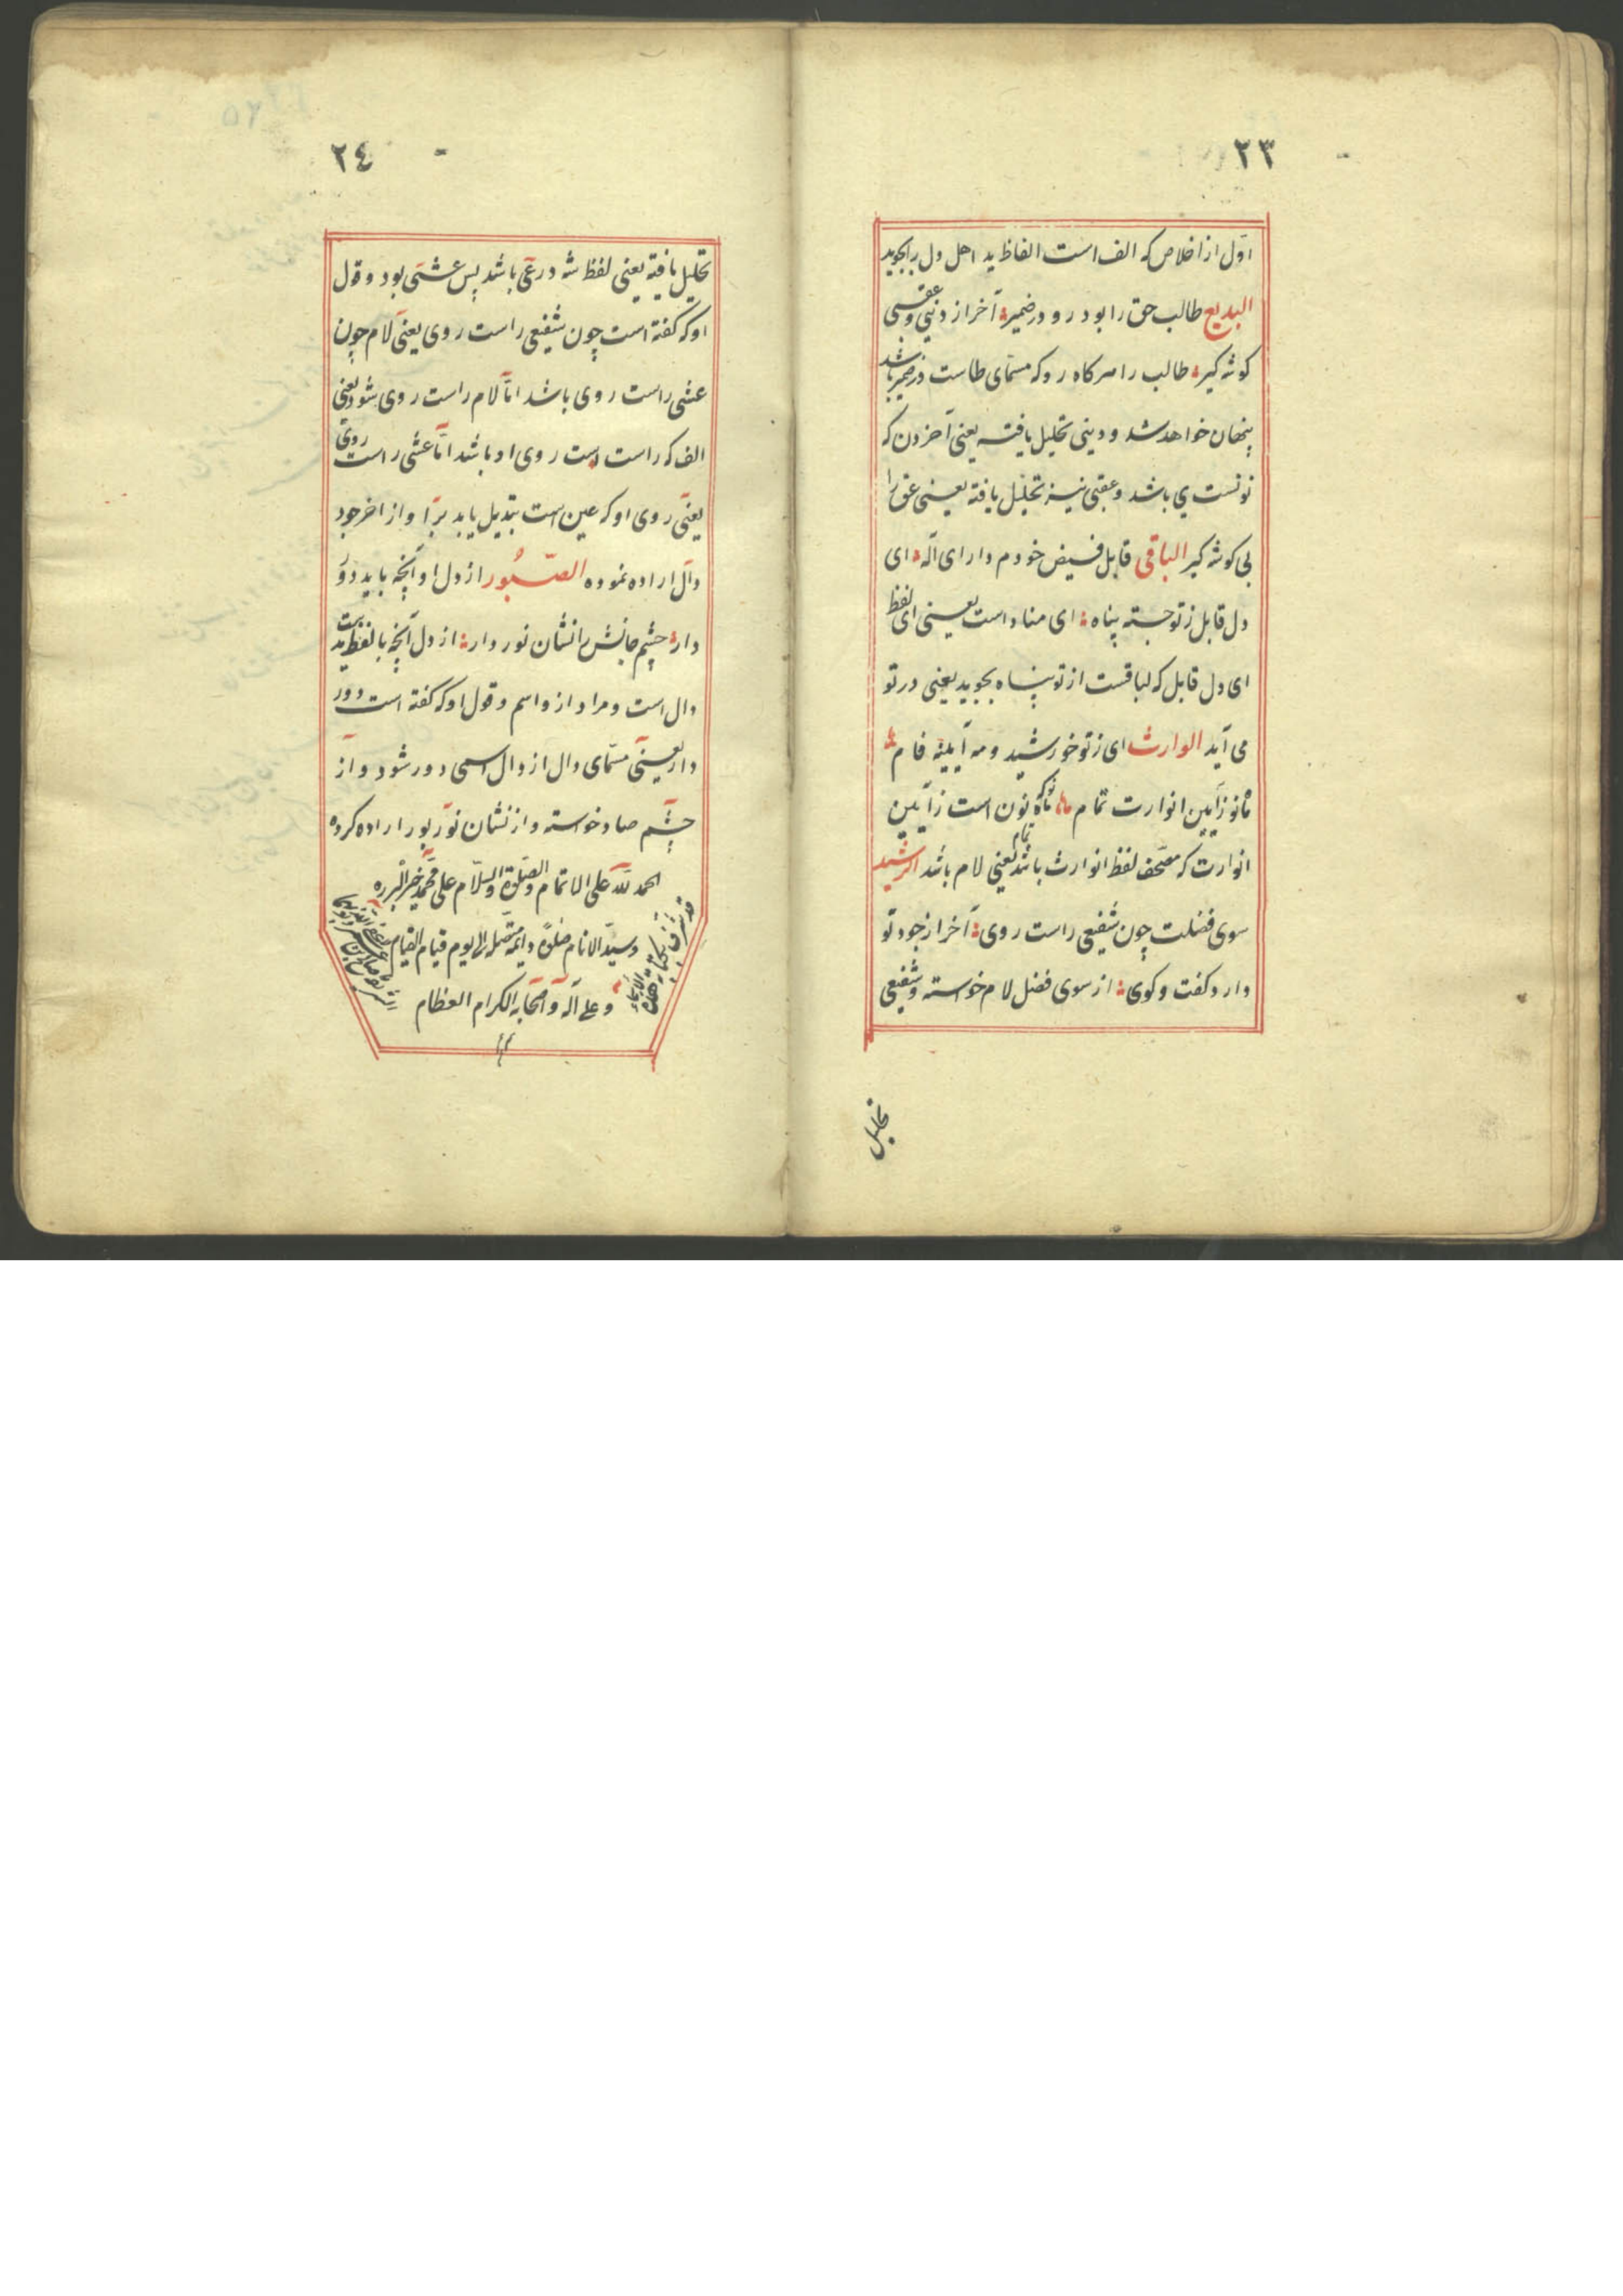 ٢٣
اوّل از اخلاص که الف است الفاظ ید اهل دل را بجوید
البدیع طالب حق را بود رو در ضمیر آخر از دنیی و عقبی
کوشه کیر طالب را هر کاه رو که مسمّای طاست در ضمیر باشد
پنهان خواهد شد و دینی تحلیل یافته یعنی آخر دن که
نونست ی باشد و عقبی نیز تحلیل یافته یعنی عق را
بی کوشه کیر الباقی قابل فیض خودم دار ای اله ای
دل قابل ز تو جسته پناه ای مناداست یعنی ای لفظ
ای دل قابل که لباقست از تو پناه بجوید یعنی در تو
می آید الوارث ای ز تو خورشید و مه آیینه فام
ماه نو ز آیین انوارت تمام ماه نو که نون است ز آیین
انوارت که مصحّف لفظ انوارث باشد تمام یعنی لام باشد الرشید
سوی فضلت چون شفیعی راست روی آخر از جود تو
دارد کفت و کوی از سوی فضل لام خواسته و شفیعی
تحلیل
٢٤
تحلیل یافته یعنی لفظ شه در عی باشد پس عشی بود و قول
او که کفته است چون شفیعی راست روی یعنی لام چون
عشی راست روی باشد امّا لام راست روی شود یعنی
الف که راست است روی او باشد امّا عشی راست روی
یعنی روی او که عین است تبدیل یابد برا و از اخر جود
دال اراده نموده الصّبُور از دل او آنچه باید دور
دار چشم جانش را نشان نور دار از دل آنچه با لفظ ید است
دال است و مراد از و اسم و قول او که کفته است دور
دار یعنی مسمّای دال از دال اسمی دور شود و از
چشم صاد خواسته و از نشان نور بور اراده کرده
الحمد لله علی الاتمام و الصّلوة و السّلام علی محمّد خیر البرره
و سیّد الانام صلوةً دایمة متّصلة الی یوم قیام القیام
و علی آله و اصحابه الکرام العظام